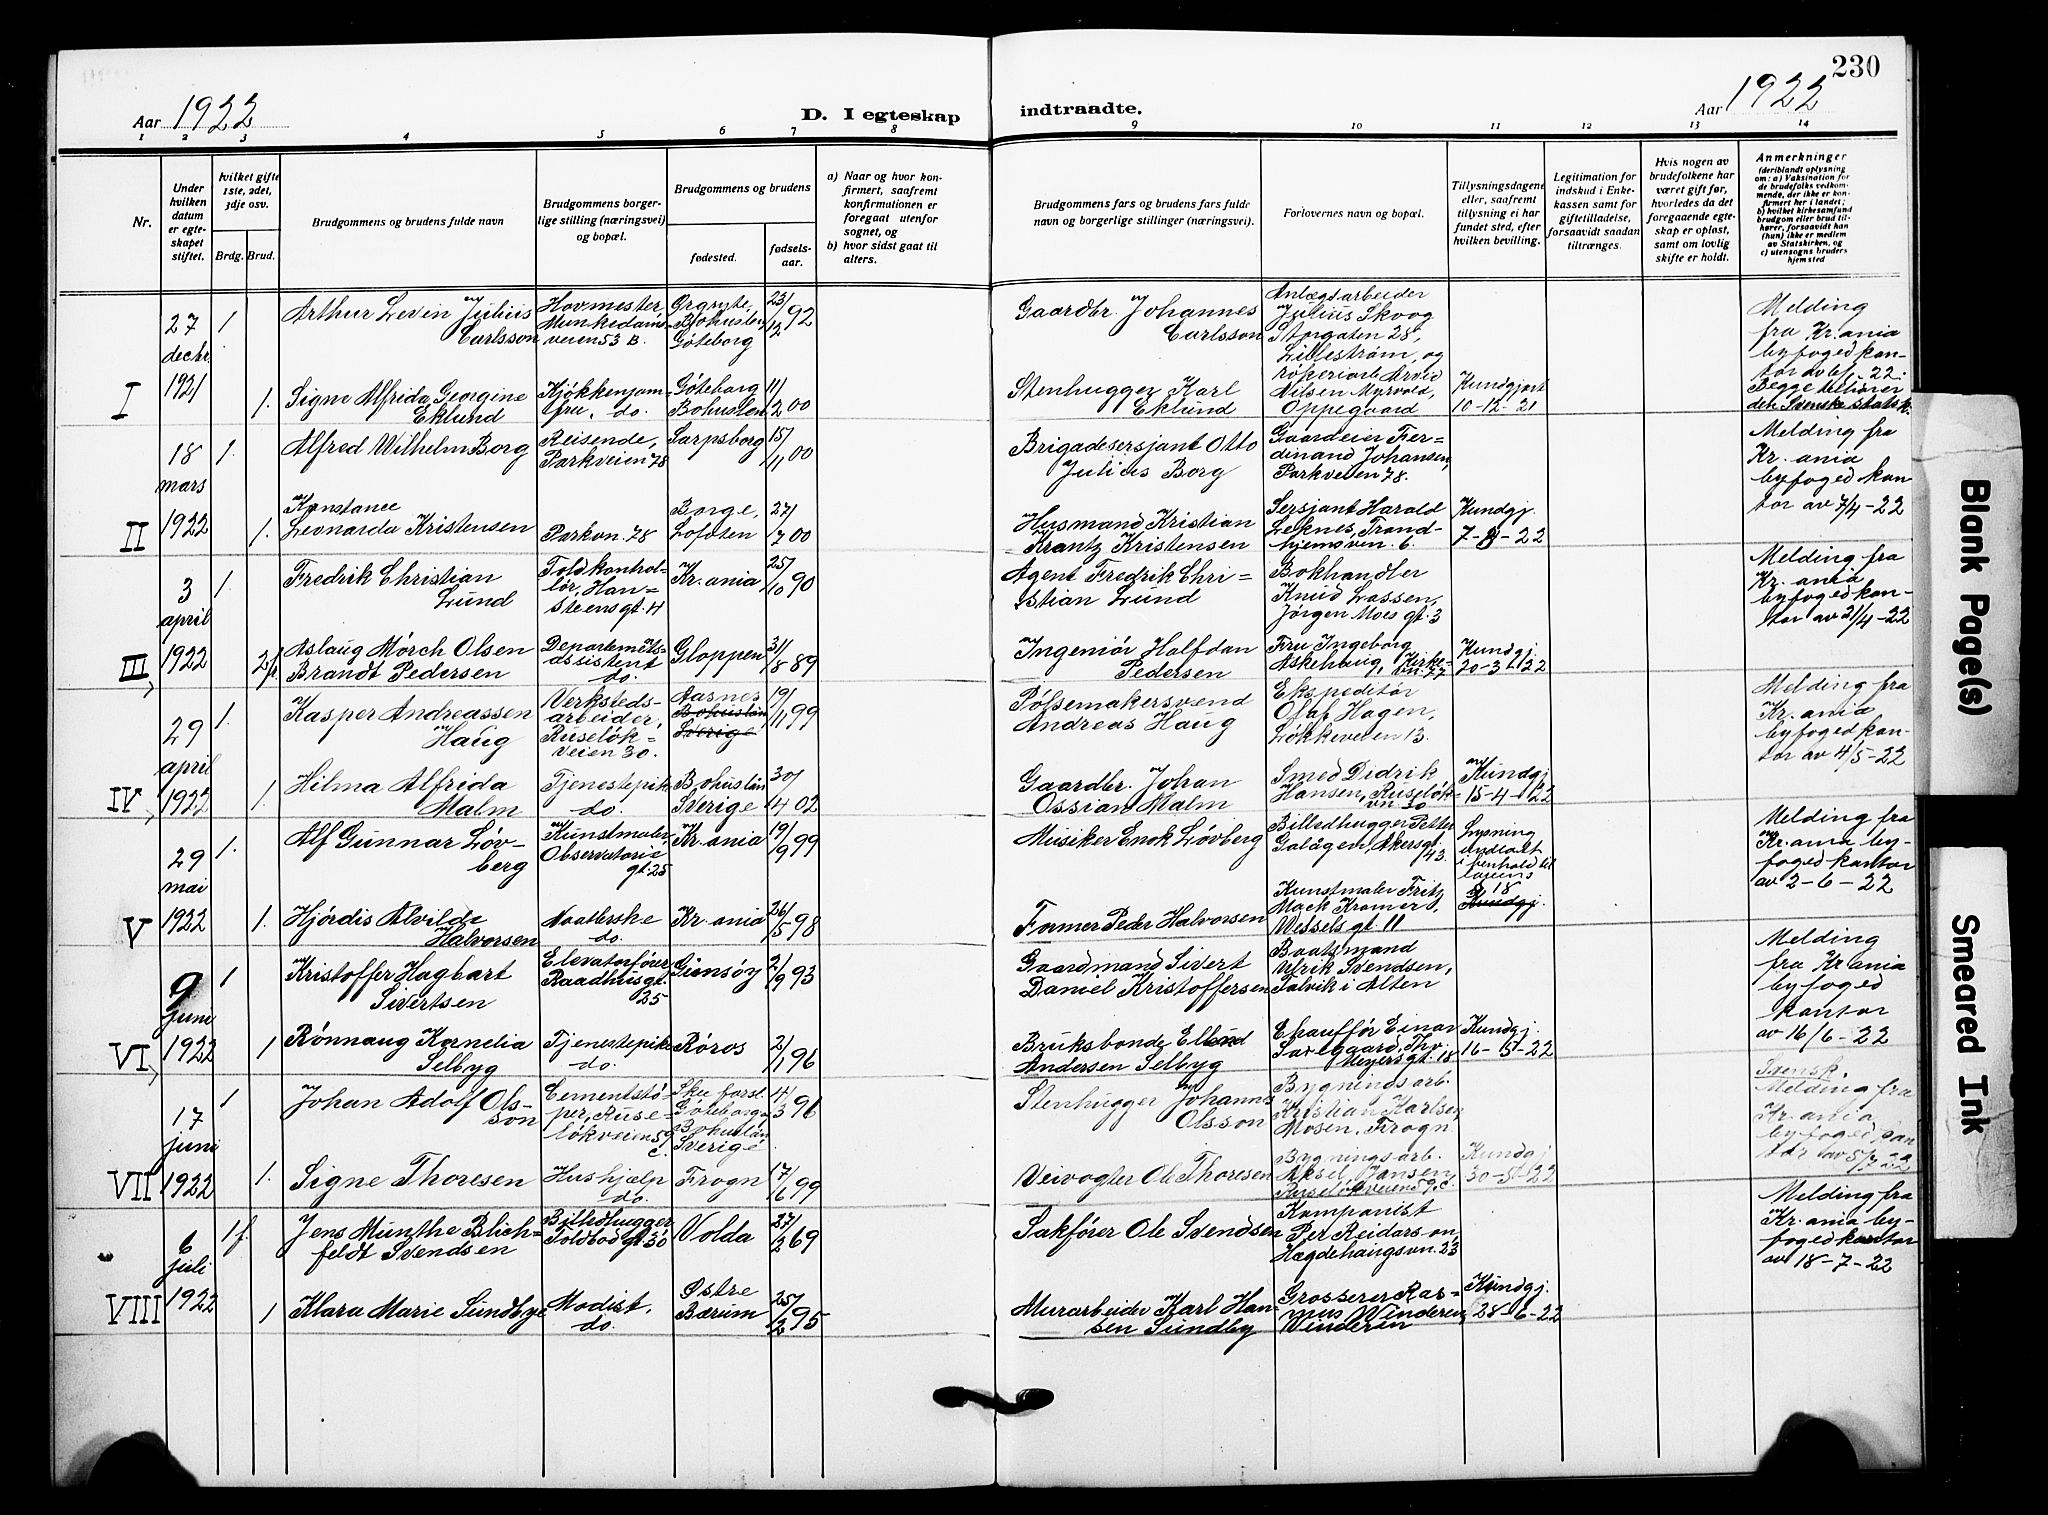 230
Aar 1922
D. I egteskap
indtraadte.
Aar 1922
1 2 3 4 5 6 7 8 9 10 11 12 13 14
Nr.
Under
hvilken
datum
er egte-
skapet
stiftet.
hvilket gifte
1ste, 2det,
3dje osv.
Brdg. Brud.
Brudgommens og brudens fulde navn
Brudgommens borger-
lige stilling (næringsvei)
og bopæl.
Brudgommens og brudens
fødested.
fødsels-
aar.
a) Naar og hvor kon-
firmert, saafremt
konfirmationen er
foregaat utenfor
sognet, og
b) hvor sidst gaat til
alters.
Brudgommens fars og brudens fars fulde
navn og borgerlige stillinger (næringsvei).
Forlovernes navn og bopæl.
Tillysningsdagene
eller, saafremt
tillysning ei har
fundet sted, efter
hvilken bevilling.
Legitimation for
indskud i Enke-
kassen samt for
giftetilladelse,
forsaavidt saadan
tiltrænges.
Hvis nogen av
brudefolkene har
været gift før,
hvorledes da det
foregaaende egte-
skap er opløst,
samt om lovlig
skifte er holdt.
Anmerkninger
(deriblandt oplysning
om: a) Vaksination for
de brudefolks vedkom-
mende, der ikke er kon-
firmert her i landet;
b) hvilket kirkesamfund
brudgom eller brud til-
hører, forsaavidt han
(hun) ikke er medlem
av Statskirken, og
c) utensogns bruders
hjemsted
I
27
decbr.
1921
1
Arthur Levin Julius
Carlsson
Hovmester,
Munkedams-
veien 53 B.
Ørgryte,
Bohuslen
Göteborg
23/12 92
Gaardbr. Johannes
Carlsson
Anlægsarbeider
Julius Skoog
Storgaten 28,
Lillestrøm, og
Melding
fra Kr.ania
byfogedkan-
tor av 6/1-22.
Begge tilhører
den Svenske statsk.
1.
Signe Alfrida Georgine
Eklund
Kjøkkenjom-
fru, do.
Göteborg
Bohuslen
11/2 00
Stenhugger Karl
Eklund
rökeriarb. Arvid
Nilsen Myrvold,
Oppegaard
Kundgjort
10-12-21
II
18
mars
1922
1.
Alfred Wilhelm Borg
Reisende,
Parkveien 78
Sarpsborg
15/11 00
Brigadesersjant Otto
Julius Borg
Gaardeier Fer=
dinand Johansen,
Parkveien 78.
Melding fra
Kr. ania
byfoged kan
tor av 7/4-22
1.
Konstance
Leonarda Kristensen
Parkvn. 78
Borge,
Lofoten
27/7 00
Husmand Kristian
Krantz Kristensen
Sersjant Harald
Leknes, Trond-
hjemsven. 6.
Kundgj.
7-3-22
III
3
april
1922
1.
Fredrik Christian
Lund
Toldkontrol-
lör, Han=
steensgt. 4
Kr. ania
25/10 90
Agent Fredrik Chri=
stian Lund
Bokhandler
Knud Lassen,
Jörgen Moes gt. 3
Melding fra
Kr. ania
byfogedkan-
tor av 21/4-22
2.f.
Aslaug Mörch Olsen
Brandt Pedersen
Departements-
assistent
do.
Gloppen
31/8 89
Ingeniör Halfdan
Pedersen
Fru Ingeborg
Askehaug, Kirke-
vn. 77
Kundgj.
20-3-22
IV
29
april
1922
1.
Kasper Andreassen
Haug
Verksteds-
arbeider,
Ruselök=
veien 30.
Aasnes
Bohuslän
Sverige
19/11 99
Pölsemakersvend
Andreas Haug
Ekspeditör
Olaf Hagen,
Lökkeveien 13.
Melding fra
Kr. ania
byfogedkan-
tor av 4/5-22
1.
Hilma Alfrida
Malm
Tjenestepik
do.
Bohuslän
Sverige
30/4 02
Gaardbr. Johan
Ossian Malm
Smed Didrik
Hansen, Ruselök-
vn 30
Kundgj.
15-4-22
V
29
mai
1922
1.
Alf Gunnar Löv-
berg
Kunstmaler,
Observatorie
gt. 25
Kr. ania
19/9 99
Musiker Enok Lövberg
Billedhugger Petter
Golågen, Akersgt.
43.
Lysning
undlatt
i henhold til
lovens
§ 18
Melding fra
Kr.ania by-
fogedkantor
av 2-6-22
1.
Hjördis Alvilde
Halvorsen
Vaatterske
do.
Kr. ania
26/5 98
Former Peder Halvorsen
Kunstmaler Fritz
Mack Kramer,
Wessels gt. 11
Kundgj.
VI
9
juni
1922
1
Kristoffer Hagbart
Sivertsen
Elevatorfører
Raadhusgt.
25
Gimsöy
2/9 93
Gaardmand Sivert
Daniel Kristoffersen
Baatsmand
Ulrik Svendsen,
Talvik i Alten
Melding
fra Kr.ania
byfoged
kantor
av 16/6-22
1
Rönnaug Kornelia
Selbyg
Tjenestepike
do.
Röros
2/1 96
Bruksbonde Ellend
Andersen Selbyg
Chaufför Einar
Savegaard, Thv.
Meyersgt. 18
Kundgj.
16-5-22
VII
17
juni
1922
1
Johan Adolf Ols-
son
Cementstö-
per, Ruse-
lökveien 59
c.
Göteborg
Bohuslän
Sverige
14/3 96
Stenhugger Johannes
Olsson
Bygningsarb.
Kristian Karlsen
Mosen, Frogn
Svensk.
Melding fra
Kr. ania
byfogedkan
tor av 5/7-22
1.
Signe Thoresen
Hushjælp
do.
Frogn
17/6 99
Veivogter Ole Thoresen
Bygningsarb.
Aksel Jansen
Ruselökveien 59.c.
Kundgj
30-5-22
VIII
6
juli
1922
1f.
Jens Munthe Blich-
feldt Svendsen
Billedhugger
Toldbod gt. 30
Volda
27/2 69
Sakförer Ole Svendsen
Komponist
Per Reidarson,
Hægdehaugsvn. 23
Melding fra
Kr. ania by-
fogedkantor
av 18-7-22
1
Klara Marie Sundbye
Modist.
do.
Østre
Bærum
25/2 95
Murarbeider Karl Han-
sen Sundby
Grosserer Ras-
mus Winderen,
Vinderen
Kundgj.
28-6-22
Blank Page(s)
Smeared Ink